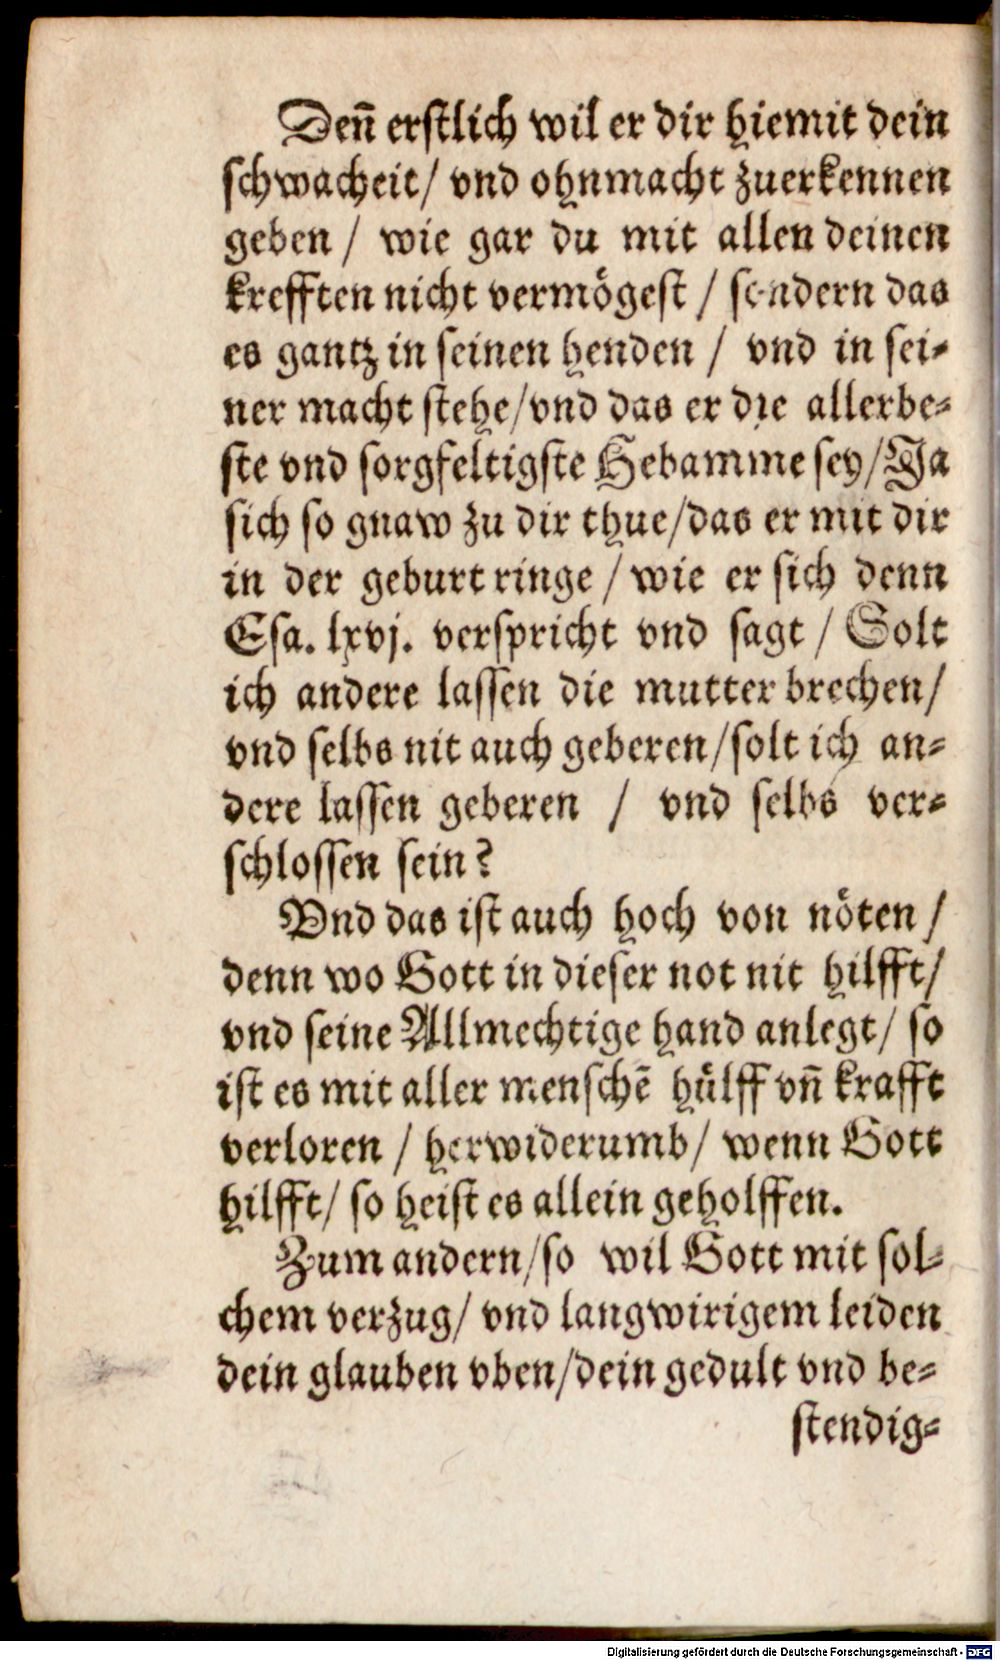 Deñ erstlich wil er dir hiemit dein
schwacheit/ vnd ohnmacht zuerkennen
geben / wie gar du mit allen deinen
krefften nicht vermögest / sondern das
es gantz in seinen henden / vnd in sei-
ner macht stehe/vnd das er die allerbe-
ste vnd sorgfeltigste Hebamme sey/Ja
sich so gnaw zu dir thue/das er mit dir
in der geburt ringe / wie er sich denn
Esa. lxvj. verspricht vnd sagt / Solt
ich andere lassen die mutter brechen/
vnd selbs nit auch geberen/solt ich an-
dere lassen geberen / vnd selbs ver-
schlossen sein?
Vnd das ist auch hoch von nöten /
denn wo Gott in dieser not nit hilfft/
vnd seine Allmechtige hand anlegt/ so
ist es mit aller menschē hülff vñ krafft
verloren / herwiderumb/ wenn Gott
hilfft/ so heist es allein geholffen.
Zum andern/so wil Gott mit sol-
chem verzug/ vnd langwirigem leiden
dein glauben vben/dein gedult vnd be-
stendig-
Digitalisierung gefördert durch die Deutsche Forschungsgemeinschaft - DFG